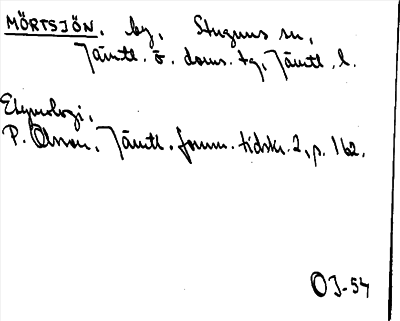 MÖRTSJÖN. by, Stuguns sn,
Jämtl. ö. doms. tg, Jämtl. l.
Etymologi,
P. Olsson, Jämtl. fornm. tidskr. 2, p. 162.
OJ-54